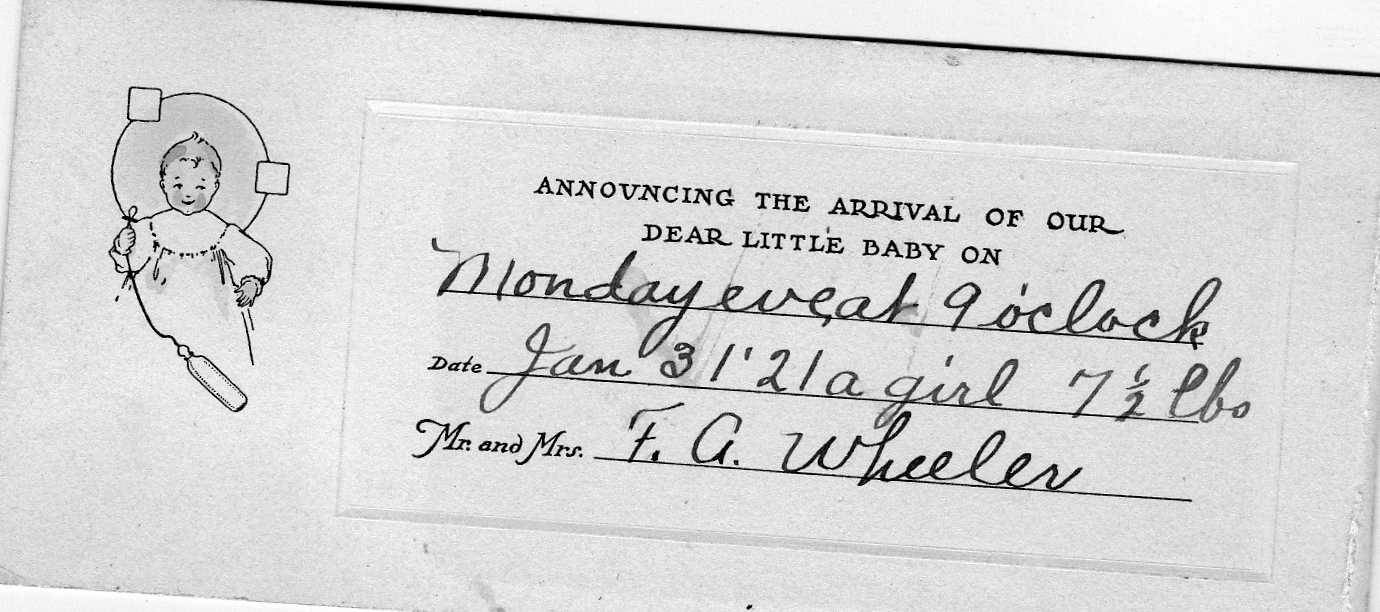 ANNOVNCING THE ARRIVAL OF OUR
DEAR LITTLE BABY ON
Monday eve, at 9 o'clock
Date Jan 31 '21 a girl 7 ½ lbs
Mr. and Mrs. F. A. Wheeler